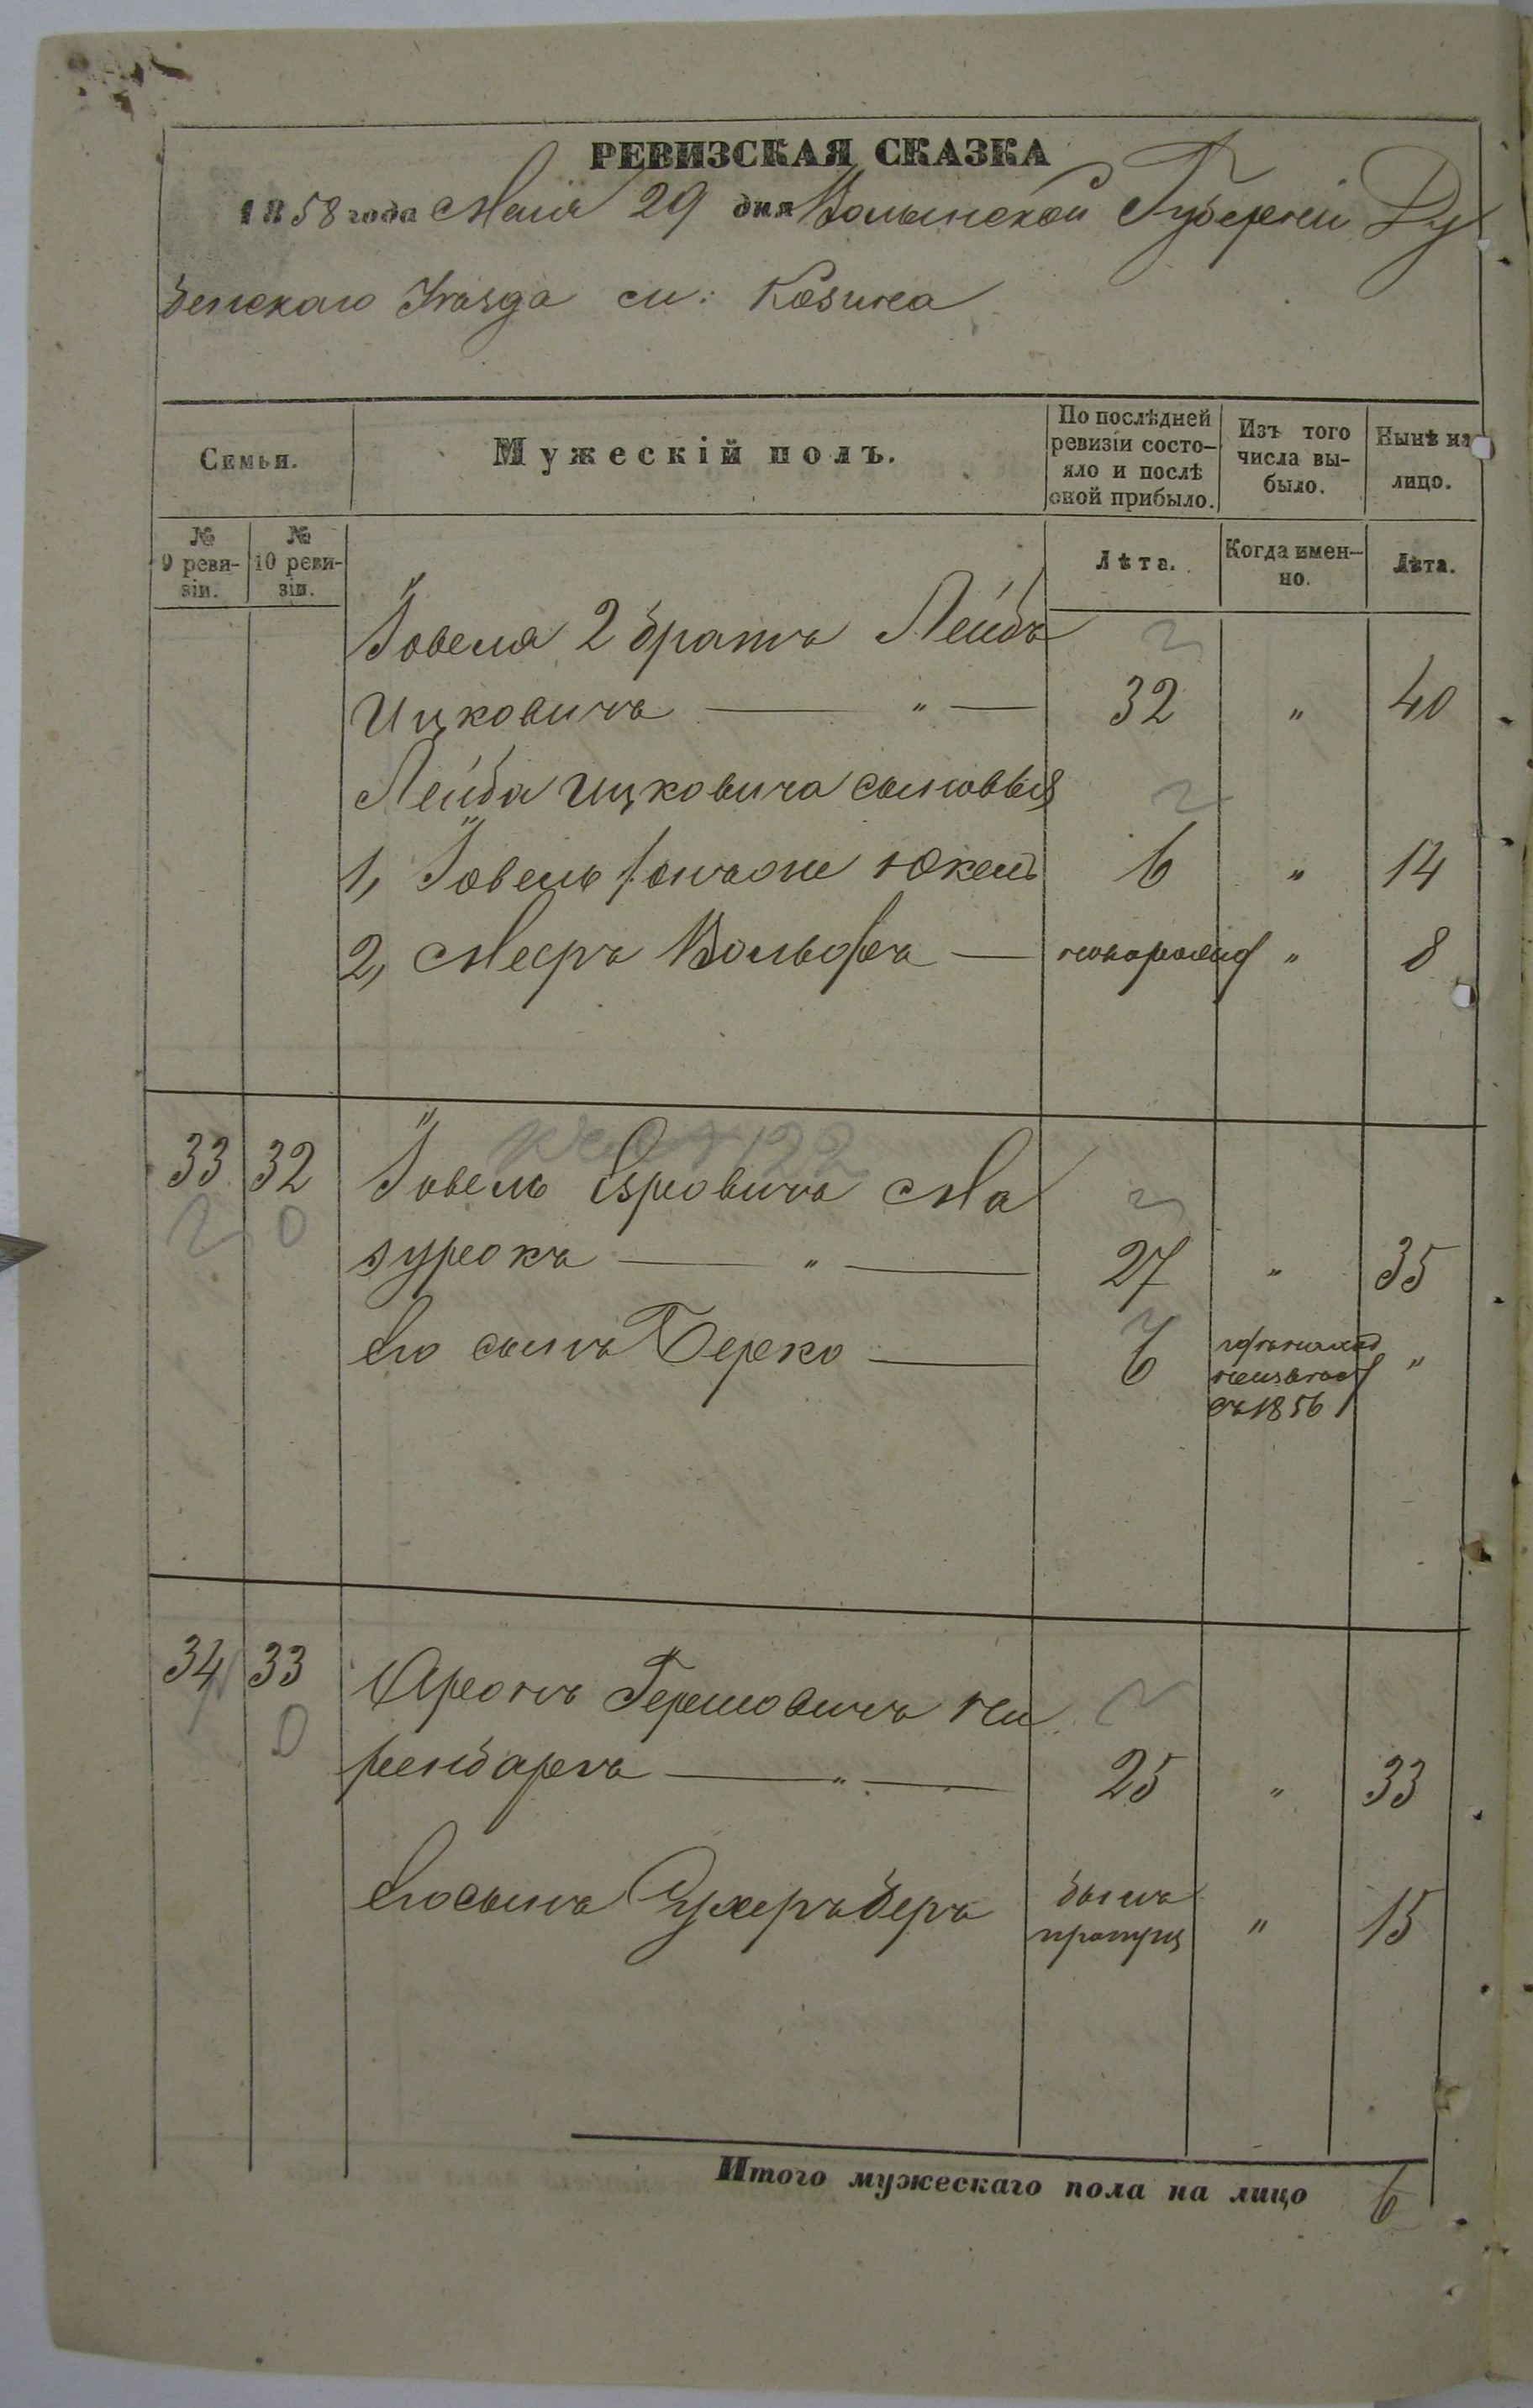 РЕВИЗСКАЯ СКАЗКА
1858 года Маія 29 дня Волынской Губерніи Ду
бенскаго Уѣзда м: Козина
Семьи.
Мужескій полъ.
По послѣдней ревизіи состо-
яло и послѣ
оной прибыло.
Изъ того
числа вы-
было.
Нынѣ на
лицо.
№
9 реви-
зіи.
№
10 реви-
зіи.
Лѣта.
Когда имен-
но.
Лѣта.
Іовеля 2 братъ Лейба
Ицковичъ — " — 32 " 40
Лейбы Ицковича сыновья
1, Іовель онъ же Юкель 6 " 14
2, Мееръ Вольфъ — новорожд " 8
33 32 Іовель Сроовичъ Ма
зурокъ — " — 27 " 35
Его сынъ Берко — 6 "
съ 1856
34 33 Аронъ Гершовичъ
— " — 25 " 33
Его сынъ Сухеръ Беръ былъ пропущ " 15
Итого мужескаго пола на лицо 6